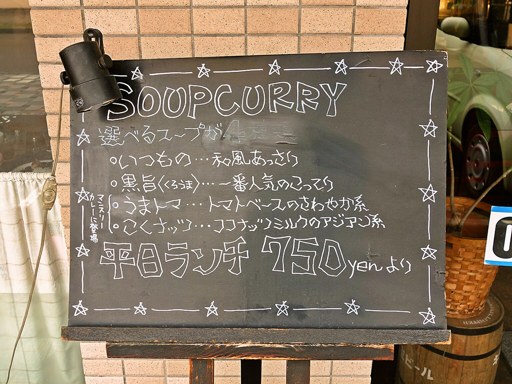 SOUPCURRY
選べるスープが
いつもの…和風あっさり
黒旨〈くろうま〉…一番人気のこってり
うまトマ…トマトベースのさわやか系
こくナッツ…ココナッツミルクのアジアン系
マンスリー
カレーに登場
平日ランチ 750yenより
ビール